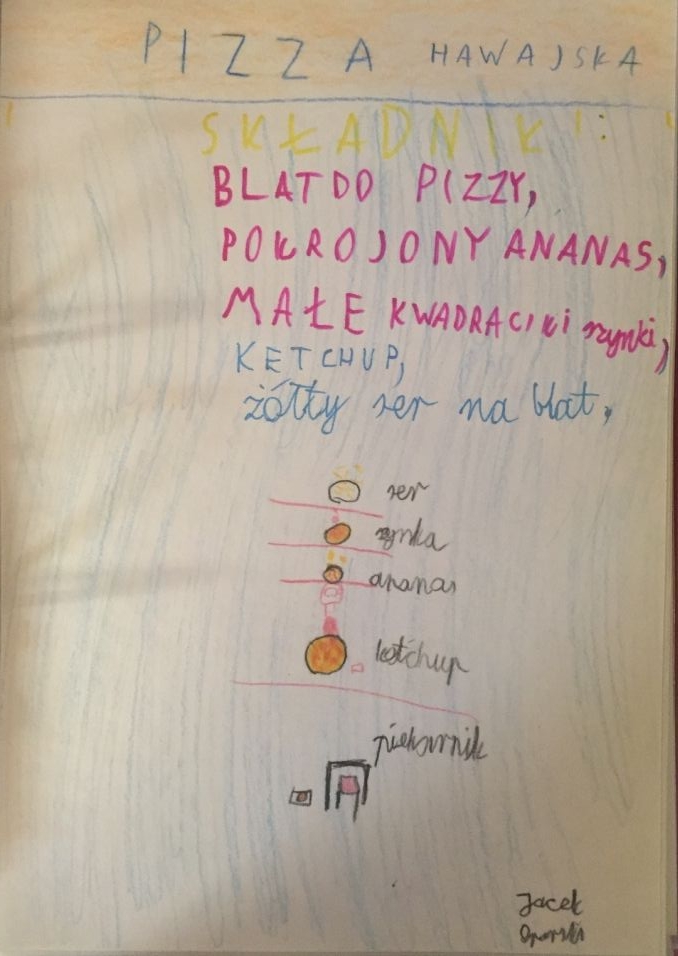 PIZZA HAWAJSKA
SKŁADNIKI:
BLAT DO PIZZY,
POKROJONY ANANAS,
MAŁE KWADRACIKI szynki,
KETCHUP,
żółty ser na blat,
ser
szynka
ananas
ketchup
piekarnik
Jacek